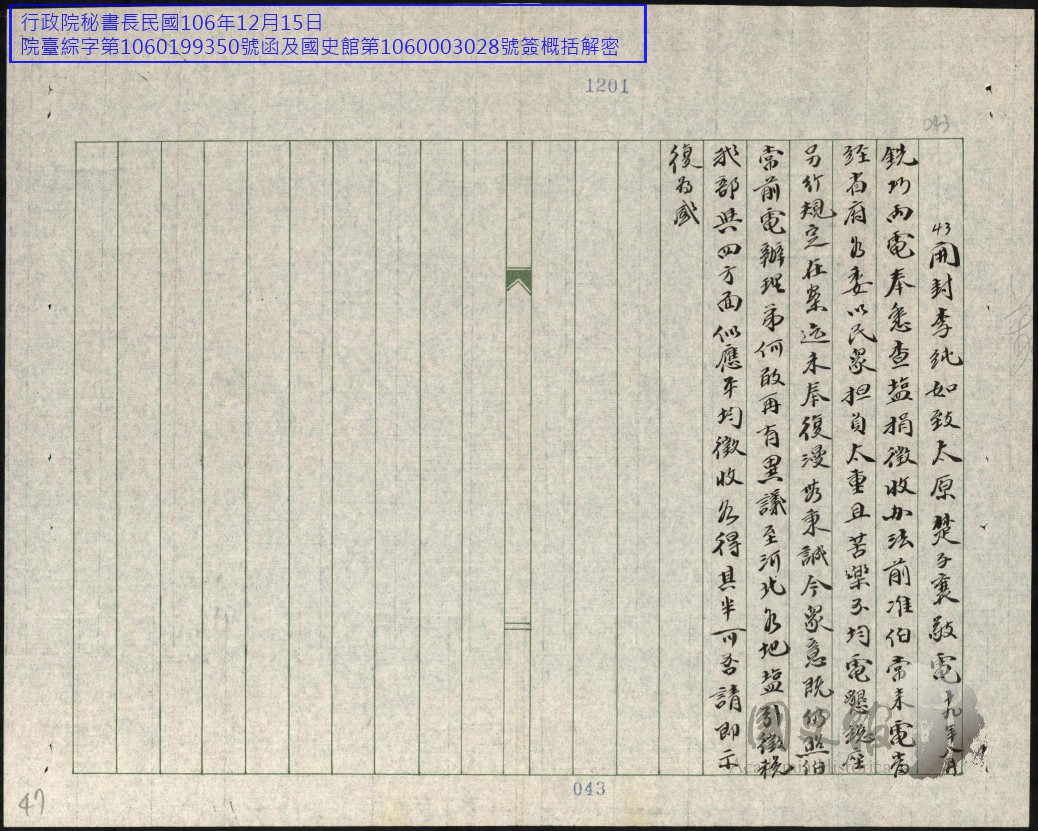 行政院秘書長民國106年12月15日
院臺綜字第1060199350號函及國史館第1060003028號簽概括解密
1201
043
43 開封李純如致太原楚子襄敬電 十九年八月
銑巧兩電奉悉查塩捐徵收办法前准伯常來電当
経省府各委以民衆担負太重且苦樂不均電懇総座
另行規定在案迄未奉復漫坊秉誠今衆意既仍照伯
常前電辦理弟何敢再有異議至河北各地塩引徵税
我部與四方面似應平均徵收各得其半可否請即示
復為感
國史館
Academia Historica
043
47